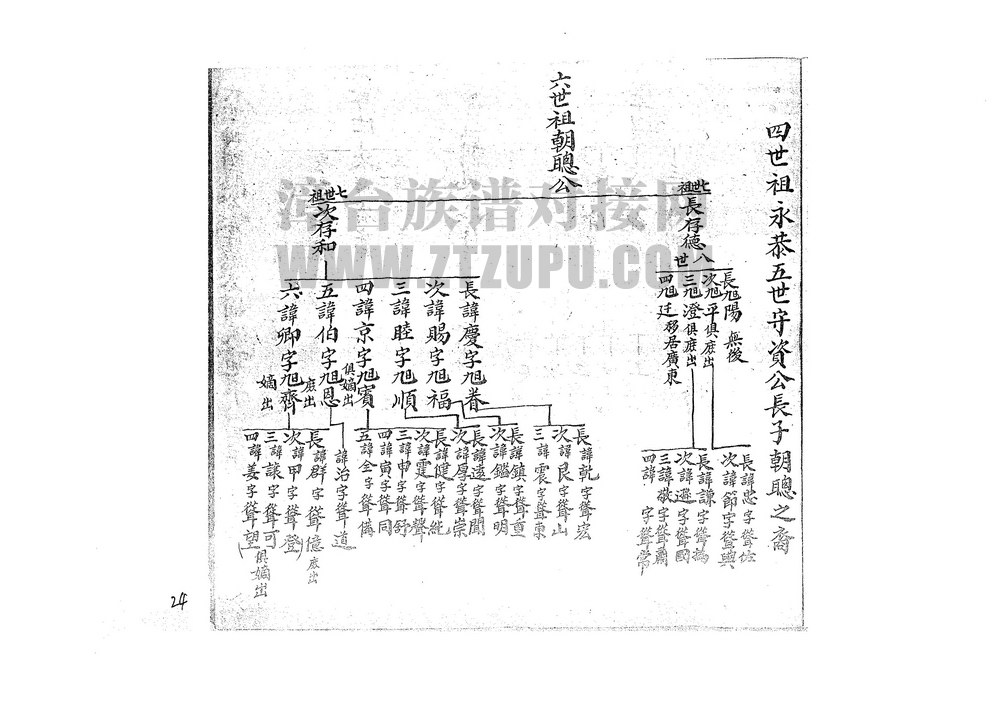 四世祖永恭五世守資公長子朝聰之裔
六世祖朝聰公
七世祖
長存德
八世
長旭陽 無後
次旭平俱庶出
三旭澄俱庶出
四旭廷移居廣東
長諱忠字聳佐
次諱節字聳興
長諱謙字聳揚
次諱遜字聳國
三諱敬字聳爵
四諱 字聳常
七世祖
次存和
長諱慶字旭養
次諱賜字旭福
三諱睦字旭順
四諱京字旭賓
俱嫡出
五諱伯字旭恩
庶出
六諱卿字旭齊
嫡出
長諱乾字聳宏
次諱艮字聳山
三諱震字聳東
長諱鎮字聳重
次諱繼字聳明
長諱遠字聳聞
次諱厚字聳崇
長諱健字聳純
次諱霆字聳聲
三諱申字聳舒
四諱寅字聳同
五諱全字聳備
諱治字聳道
長諱群字聳億庶出
次諱甲字聳登
三諱讓字聳可
四諱姜字聳望
俱嫡出
漳台族谱对接网
WWW.ZTZUPU.COM
24